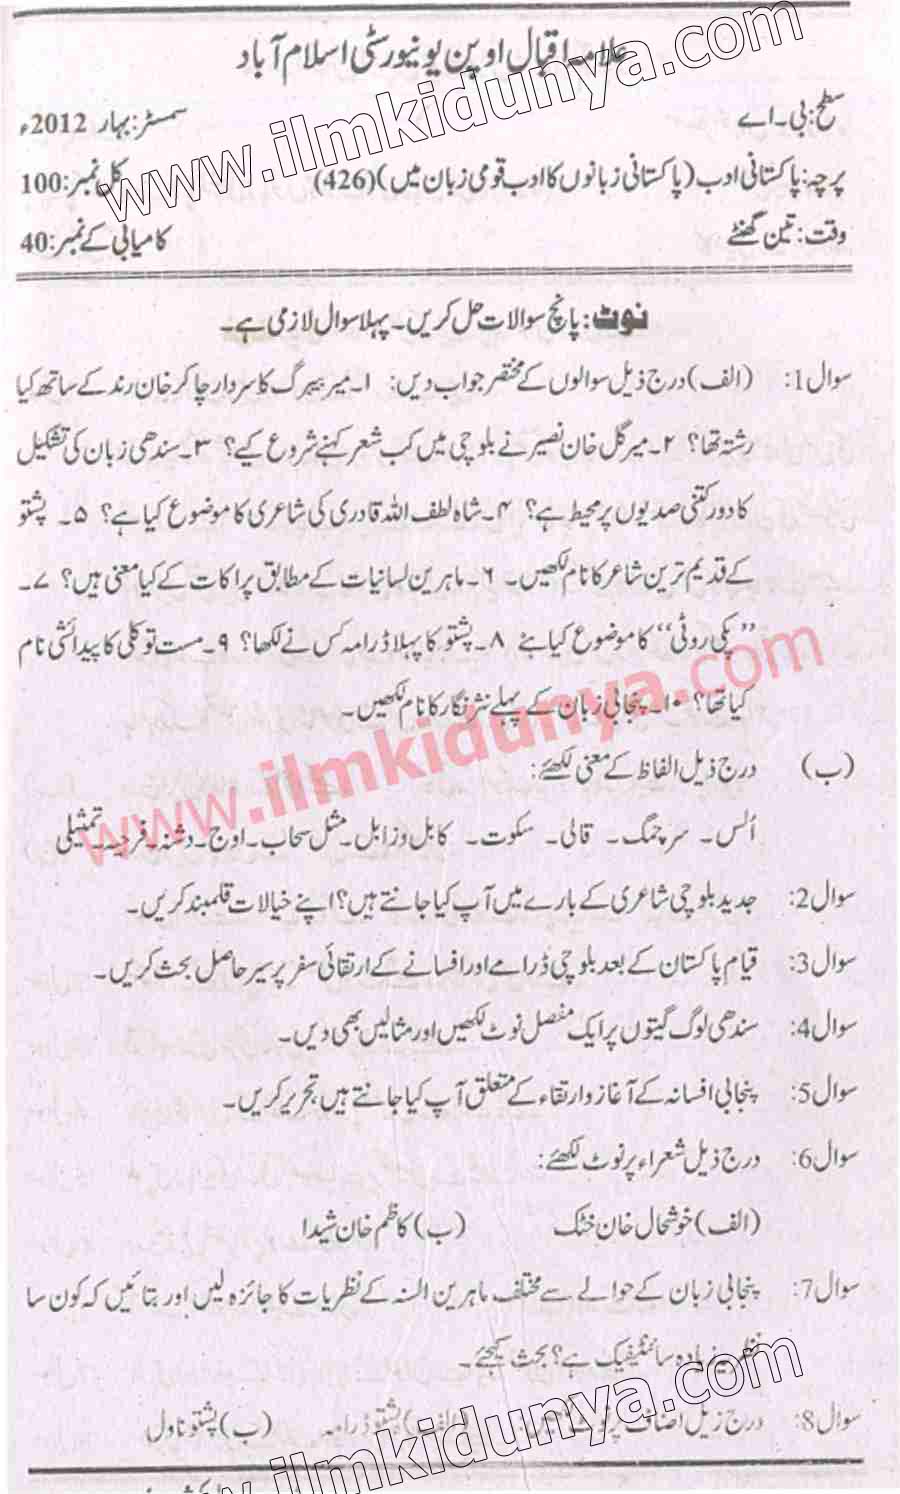 علامہ اقبال اوپن یونیورسٹی اسلام آباد
سطح: بی۔ اے سمسٹر: بہار 2012ء
پرچہ: پاکستانی ادب (پاکستانی زبانوں کا ادب قومی زبان میں) (426) کل نمبر: 100
وقت: تین گھنٹے کامیابی کے نمبر: 40
www.ilmkidunya.com
نوٹ: پانچ سوالات حل کریں۔ پہلا سوال لازمی ہے۔
سوال 1: (الف) درج ذیل سوالوں کے مختصر جواب دیں: ۱۔ میر بیبرگ کا سردار چاکر خان رند کے ساتھ کیا
رشتہ تھا؟ ۲۔ میر گل خان نصیر نے بلوچی میں کب شعر کہنے شروع کیے؟ ۳۔ سندھی زبان کی تشکیل
کا دور کتنی صدیوں پر محیط ہے؟ ۴۔ شاہ لطف اللہ قادری کی شاعری کا موضوع کیا ہے؟ ۵۔ پشتو
کے قدیم ترین شاعر کا نام لکھیں۔ ۶۔ ماہرین لسانیات کے مطابق پراکات کے کیا معنی ہیں؟ ۷۔
”پکی روٹی“ کا موضوع کیا ہے ۸۔ پشتو کا پہلا ڈرامہ کس نے لکھا؟ ۹۔ مست توکلی کا پیدائشی نام
کیا تھا؟ ۱۰۔ پنجابی زبان کے پہلے نثر نگار کا نام لکھیں۔
www.ilmkidunya.com
(ب) درج ذیل الفاظ کے معنی لکھئے:
اُلس۔ سرچمگ۔ قالی۔ سکوت۔ کابل و زابل۔ مثل سحاب۔ اوج۔ دشنہ۔ تمثیلی
سوال 2: جدید بلوچی شاعری کے بارے میں آپ کیا جانتے ہیں؟ اپنے خیالات قلمبند کریں۔
سوال 3: قیام پاکستان کے بعد بلوچی ڈرامے اور افسانے کے ارتقائی سفر پر سیر حاصل بحث کریں۔
سوال 4: سندھی لوگ گیتوں پر ایک مفصل نوٹ لکھیں اور مثالیں بھی دیں۔
سوال 5: پنجابی افسانہ کے آغاز و ارتقاء کے متعلق آپ کیا جانتے ہیں تحریر کریں۔
سوال 6: درج ذیل شعراء پر نوٹ لکھئے:
(الف) خوشحال خان خٹک (ب) کاظم خان شیدا
سوال 7: پنجابی زبان کے حوالے سے مختلف ماہرین السنہ کے نظریات کا جائزہ لیں اور بتائیں کہ کون سا
نظریہ زیادہ سائنٹیفیک ہے؟ بحث کیجئے۔
سوال 8: درج زیل اصناف پر نوٹ لکھیں: (الف) پشتو ڈرامہ (ب) پشتو ناول
www.ilmkidunya.com